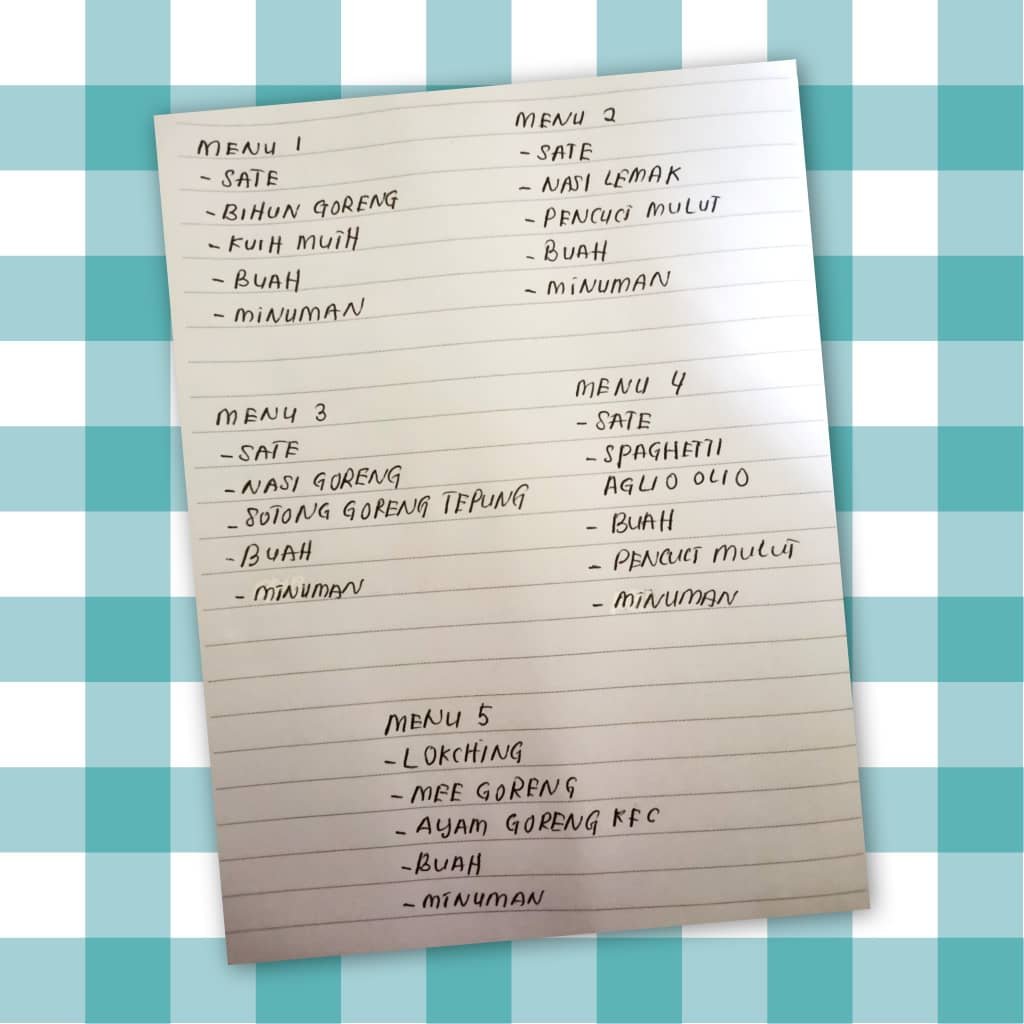 MENU 1
- SATE
- BIHUN GORENG
- KUIH MUIH
- BUAH
- MINUMAN
MENU 2
- SATE
- NASI LEMAK
- PENCUCI MULUT
- BUAH
- MINUMAN
MENU 3
- SATE
- NASI GORENG
- SOTONG GORENG TEPUNG
- BUAH
- MINUMAN
MENU 4
- SATE
- SPAGHETTI
AGLIO OLIO
- BUAH
- PENCUCI MULUT
- MINUMAN
MENU 5
- LOKCHING
- MEE GORENG
- AYAM GORENG KFC
- BUAH
- MINUMAN